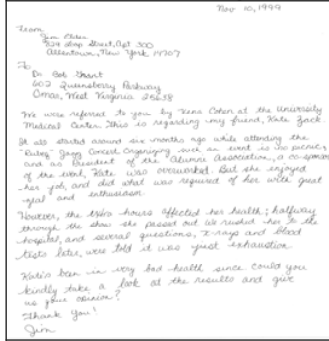 Nov 10, 1999
From
Jim Elder
829 Loop Street, Apt 300
Allentown, New York 14707
To
Dr Bob Grant
602 Queensberry Parkway
Omar, West Virginia 25638
We were referred to you by Xena Cohen at the University
Medical Center. This is regarding my friend, Kate Zack.
It all started around six months ago while attending the
"Rubeq" Jazz Concert. Organizing such an event is no picnic,
and as President of the Alumni Association, a co-sponsor
of the event, Kate was overworked. But she enjoyed
her job, and did what was required of her with great
zeal and enthusiasm.
However, the extra hours affected her health; halfway
through the show she passed out. We rushed her to the
hospital, and several questions, x-rays and blood
tests later, were told it was just exhaustion.
Kate's been in very bad health since. Could you
kindly take a look at the results and give
us your opinion?
Thank you!
Jim